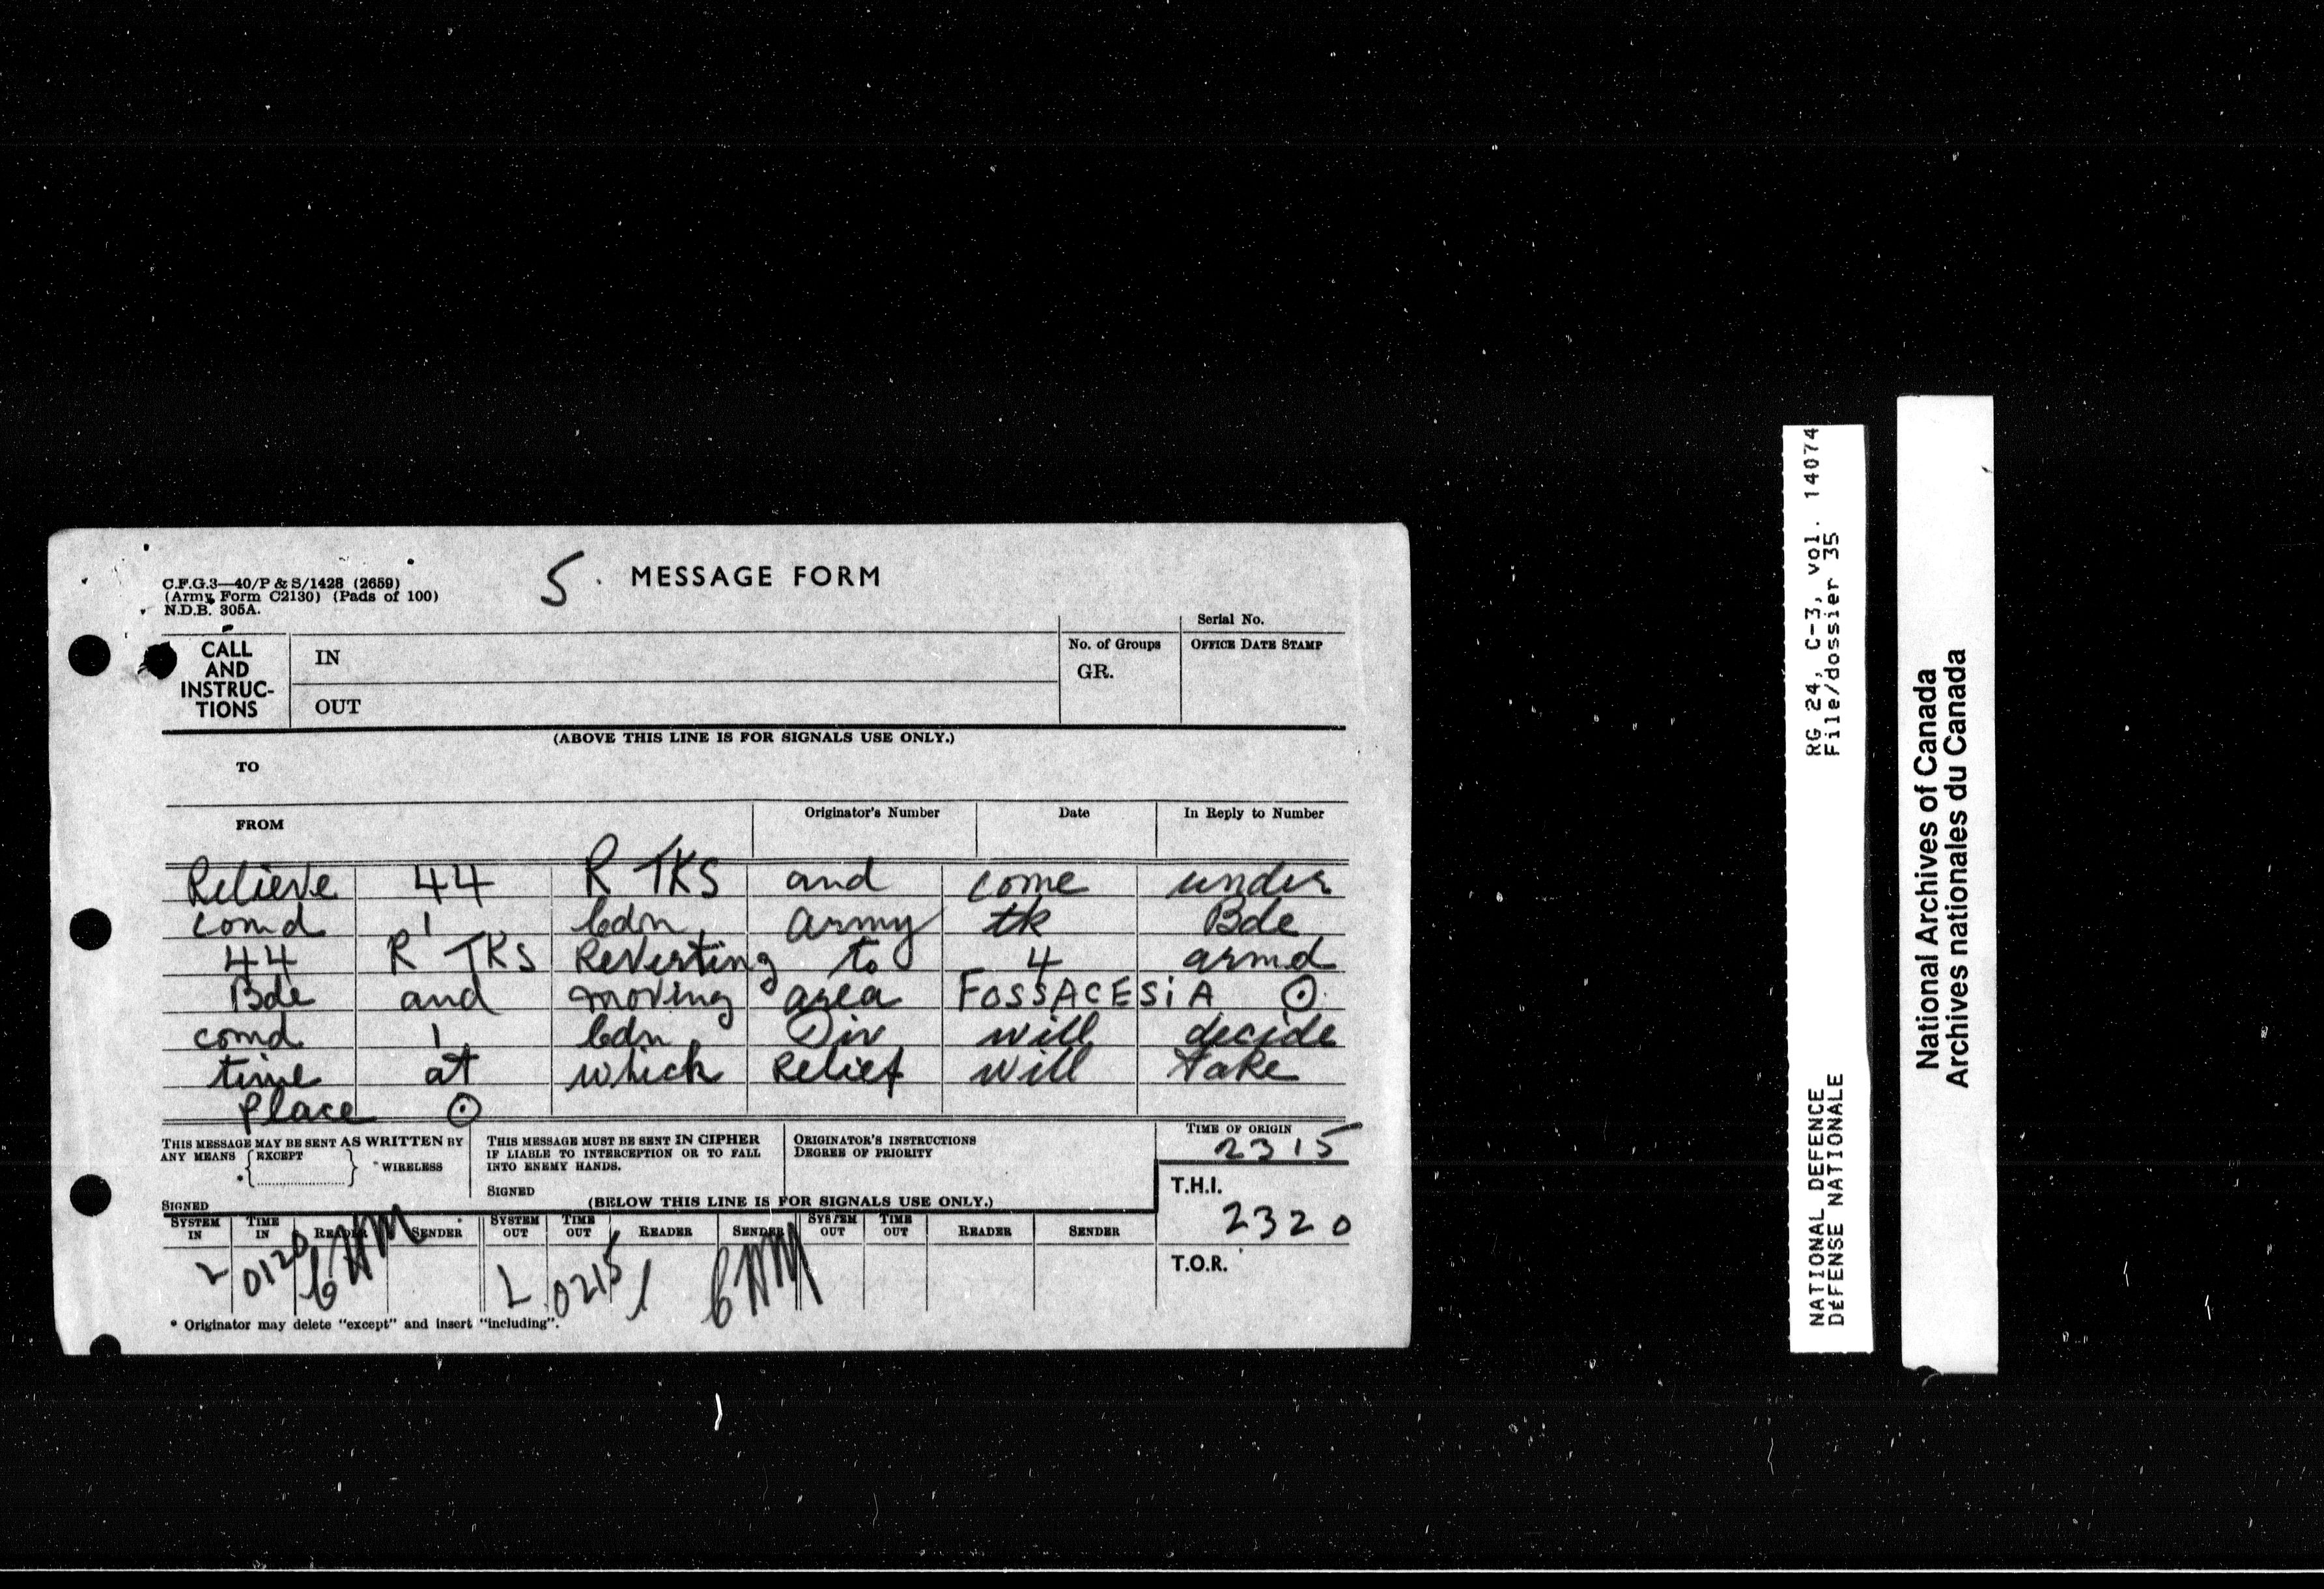 C.F.G.3—40/P & S/1428 (2659)
(Army Form C2130) (Pads of 100)
N.D.B. 305A.
5. MESSAGE FORM
Serial No.
CALL AND INSTRUC-TIONS
IN
OUT
No. of Groups
GR.
OFFICE DATE STAMP
(ABOVE THIS LINE IS FOR SIGNALS USE ONLY.)
TO
FROM
Originator's Number
Date
In Reply to Number
Relieve 44 R TKS and come under
comd 1 Cdn Army tk Bde
44 R TKS Reverting to 4 armd
Bde and moving area FOSSACESiA ⊙
comd 1 Cdn Div will decide
time at which Relief will take
place ⊙
THIS MESSAGE MAY BE SENT AS WRITTEN BY
ANY MEANS {EXCEPT ....................} WIRELESS
SIGNED
THIS MESSAGE MUST BE SENT IN CIPHER
IF LIABLE TO INTERCEPTION OR TO FALL
INTO ENEMY HANDS.
SIGNED
ORIGINATOR'S INSTRUCTIONS
DEGREE OF PRIORITY
TIME OF ORIGIN
2315
T.H.I.
2320
T.O.R.
(BELOW THIS LINE IS FOR SIGNALS USE ONLY.)
SYSTEM IN TIME IN READER SENDER SYSTEM OUT TIME OUT READER SENDER SYSTEM OUT TIME OUT READER SENDER
L 0120 L 0215
* Originator may delete "except" and insert "including".
RG 24, C-3, vol. 14074
File/dossier 35
NATIONAL DEFENCE
DÉFENSE NATIONALE
National Archives of Canada
Archives nationales du Canada